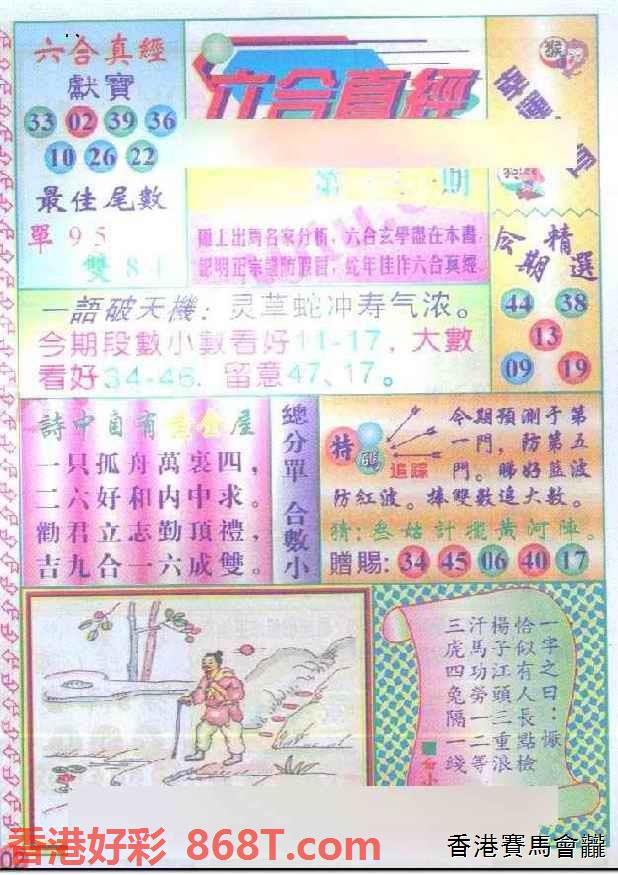 六合真經
獻寶
33 02 39 36
10 26 22
最佳尾數
單 9 5
雙 8
六合真經
第 期
猴
今期精選
44 38
13
09 19
一語破天機：灵草蛇冲寿气浓。
今期段數小數看好11-17，大數
看好34-46．留意47、17。
詩中自有黃金屋
一只孤舟萬裏四，
二六好和内中求。
勸君立志勤頂禮，
吉九合一六成雙。
總分單 合數小
特碼
追踪
今期預測于第
一門，防第五
門。睇好藍波
防紅波。捧雙數追大數。
猜：叁姑計擺黃河陣。
贈賜：34 45 06 40 17
一字之曰：懨
恰似有人長點檢
楊子江頭三重浪
汗馬功勞一二等
三虎四兔隔一綫
香港好彩 868T.com
香港賽馬會